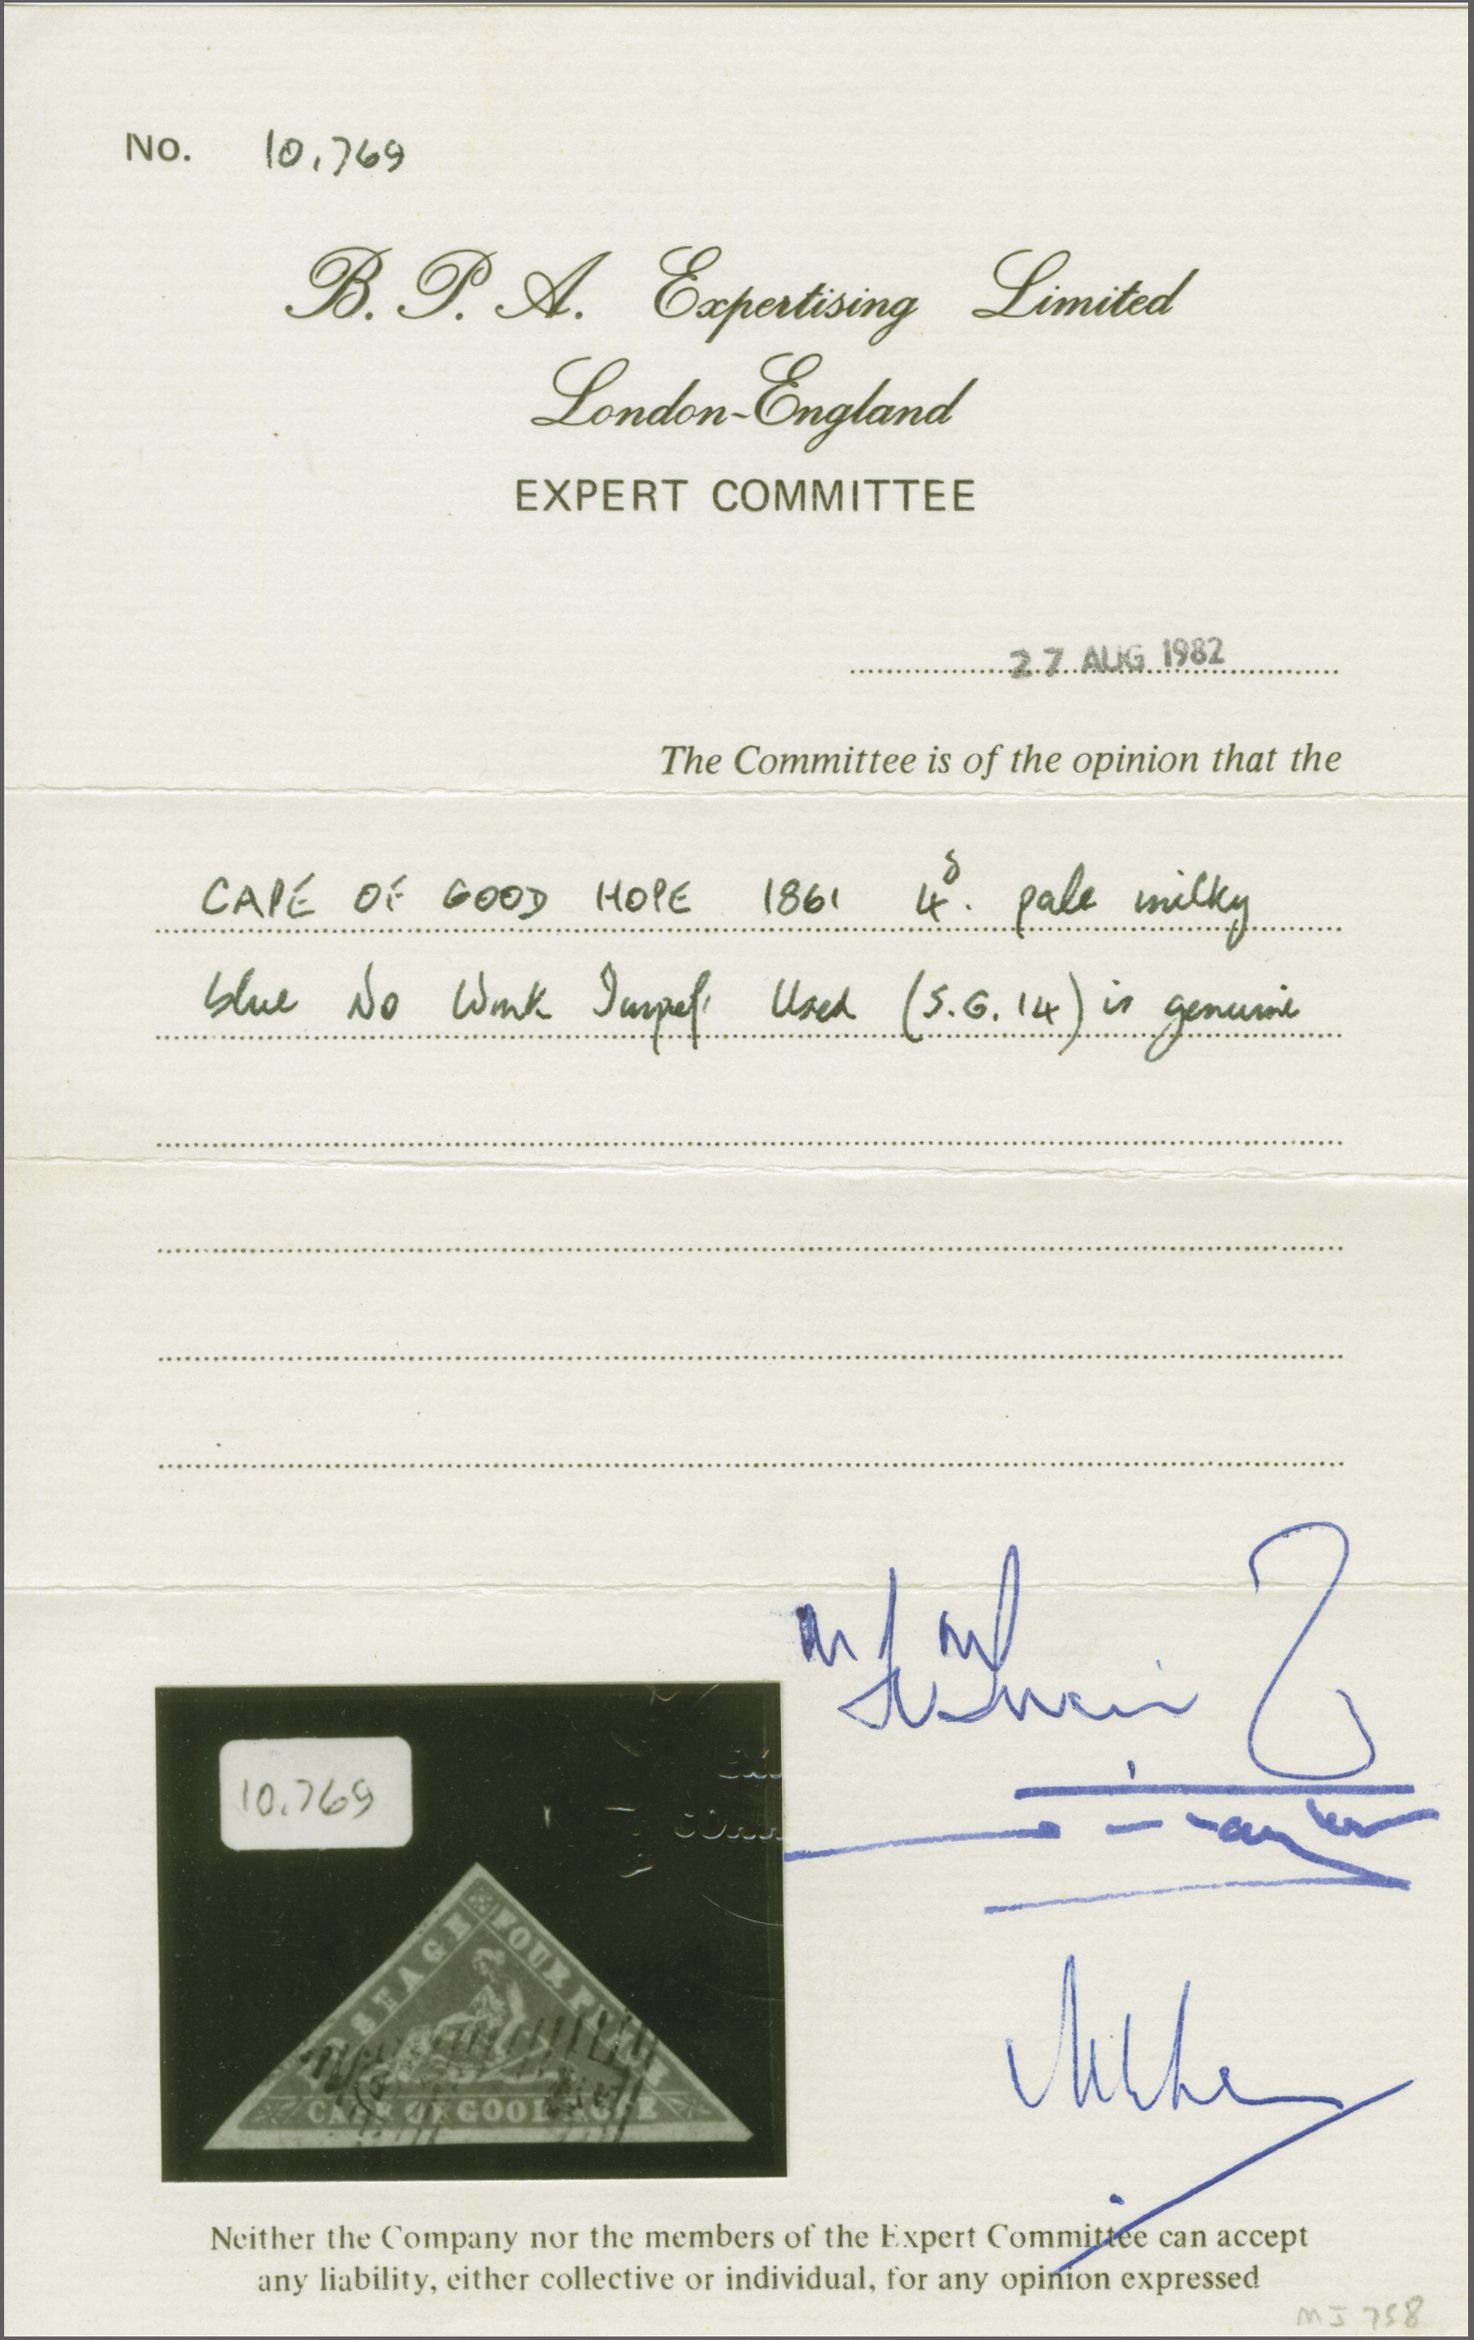 No. 10,769
B. P. A. Expertising Limited
London-England
EXPERT COMMITTEE
27 AUG 1982
The Committee is of the opinion that the
CAPE OF GOOD HOPE 1861 4d. pale milky
blue No Wmk Imperf. Used (S.G. 14) is genuine
10.769
POSTAGE
FOUR PENCE
CAPE OF GOOD HOPE
Neither the Company nor the members of the Expert Committee can accept
any liability, either collective or individual, for any opinion expressed
MJ 758